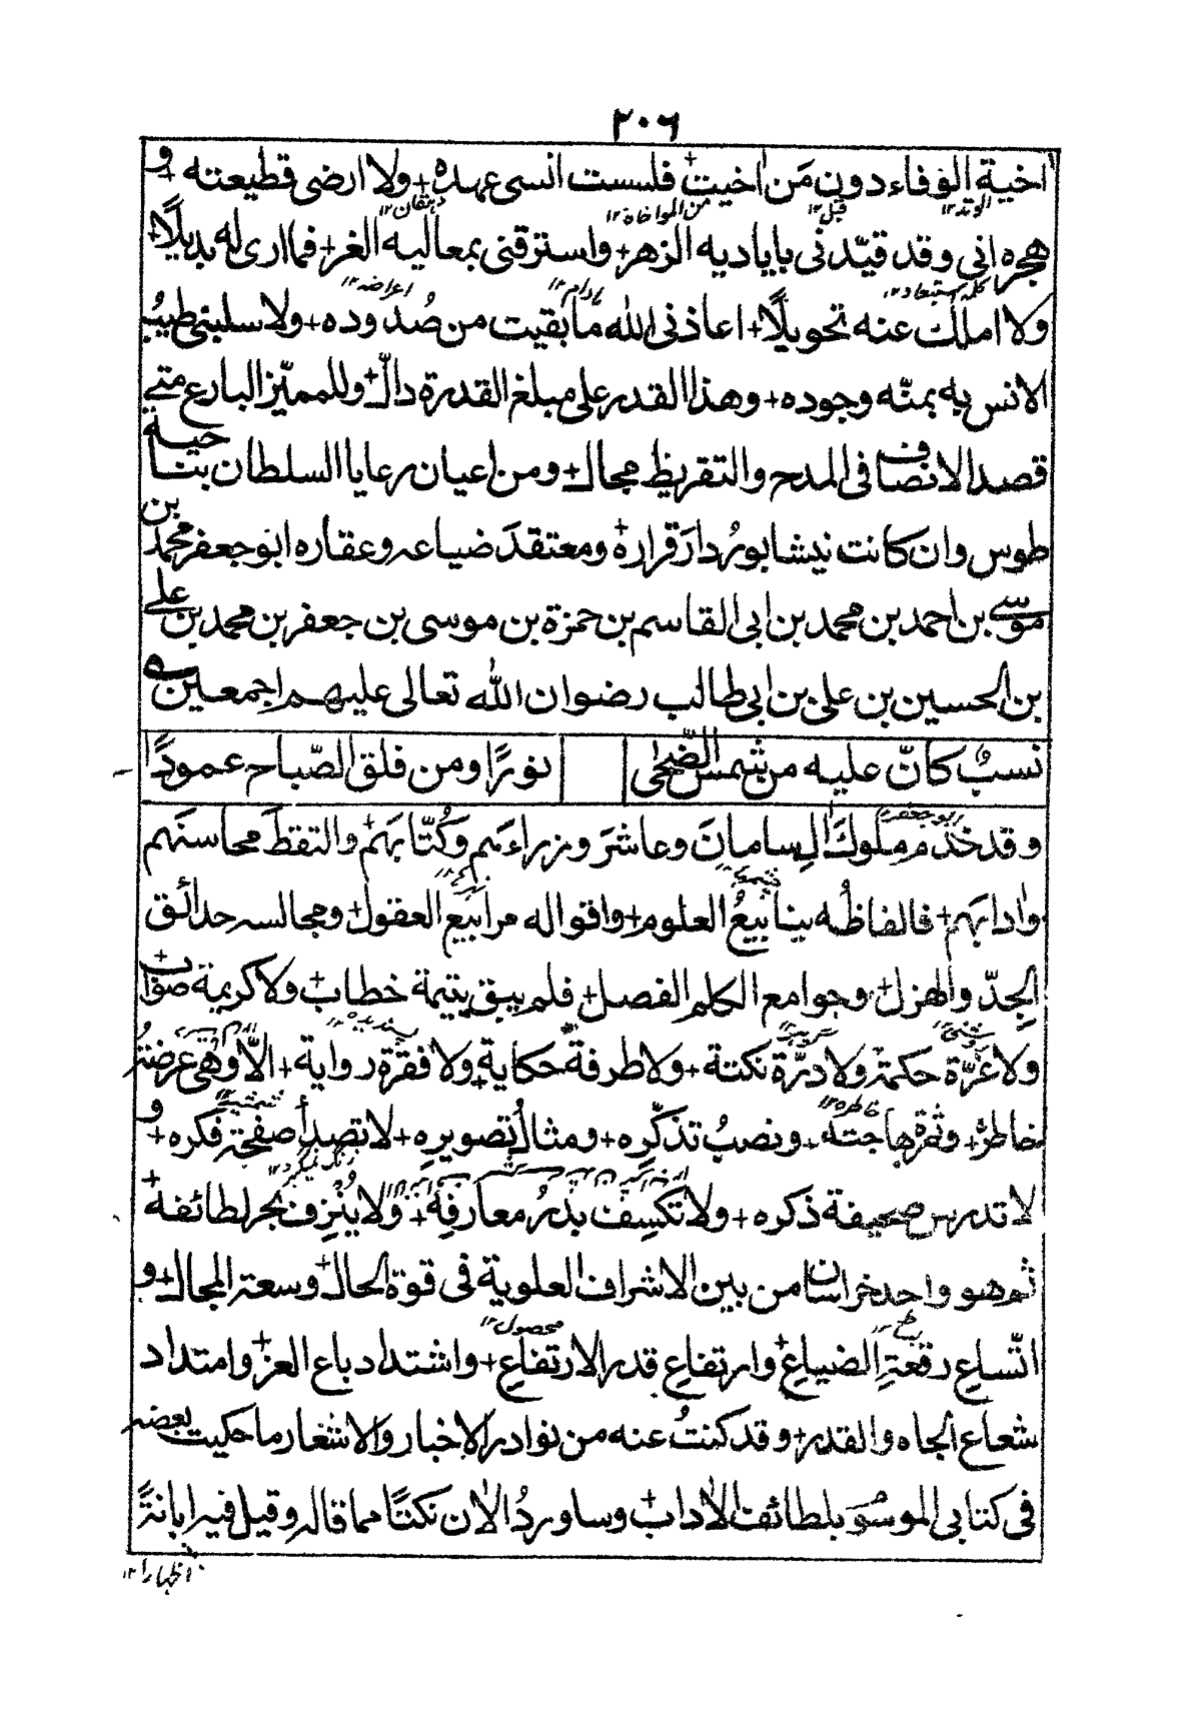 ٢٠٦
اخية الوفاء دون مَن اخيت + فلست انسى عهده + ولا ارضى قطيعته + و
الوتد ١٢ قيل ١٢ من المواخاة ١٢ دہقان ١٢
هجره انى وقد قيّدنى بايا ديه الزهر + واسترقنى بمعاليه الغر + فما ارى له بديلًا +
كلمه استبعاد ١٢ مادام ١٢ اعراضه ١٢
ولا املك عنه تحويلًا + اعاذنى الله ما بقيت من صُدوده + ولا سلبنى طيب
الانس به بمنّه وجوده + وهذا القدر على مبلغ القدرة دالّ + وللمميّز البارع متى
قصد الانصاف فى المدح والتقريظ مجال + ومن اعيان رعايا السلطان بناحية
طوس وان كانت نيشابورُ دارَ قراره + ومعتقدَ ضياعه وعقاره ابو جعفر محمد بن
موسى بن احمد بن محمد بن ابى القاسم بن حمزة بن موسى بن جعفر بن محمد بن على
بن الحسين بن على بن ابى طالب رضوان الله تعالى عليهم اجمعين
نسبٌ كانّ عليه من شمس الضّحى نورًا ومن فلق الصّباح عمودًا
ابو جعفر ١٢
وقد خدم ملوكَ ال سامانَ وعاشرَ وزراءَهم وكُتّابهم + والتقط محاسنَهم
وادابهم + فالفاظُه ينابيعُ العلوم + واقواله مرابيع العقول + ومجالسه حدائق
الجِدّ والهزل + وجوامع الكلم الفصل + فلم يبق يتيمة خطاب + ولا كريمة صواب +
پسنديده ١٢
ولا غرّة حكمة ولا درّة نكتة + ولا طرفة حكاية + ولا فقرة رواية + الّا وهى عرضتُ
خاطره ١٢
خاطره + وثمرة هاجته + ونصبُ تذكّره + ومثالُ تصويره + لا تصدأ صفحة فكره + و
زنگ نميگيرد ١٢
لا تدرس صحيفة ذكره + ولا تكسف بدرُ معارفه + ولا يُنزف بحر لطائفه +
ثم هو واحد خراسان من بين الاشراف العلوية فى قوة الحال + وسعة المجال + و
محصول ١٢
اتّساع رقعةِ الضياع + وارتفاع قدر الارتفاع + واشتداد باع العز + وامتداد
شعاع الجاه والقدر + وقد كنتُ عنه من نوادر الاخبار والاشعار ما حكيت بعضه
فى كتابى الموسوم بلطائف الاداب + وساوردُ الان نكتًا مما قاله وقيل فيه ابانةً
اظهارا ١٢